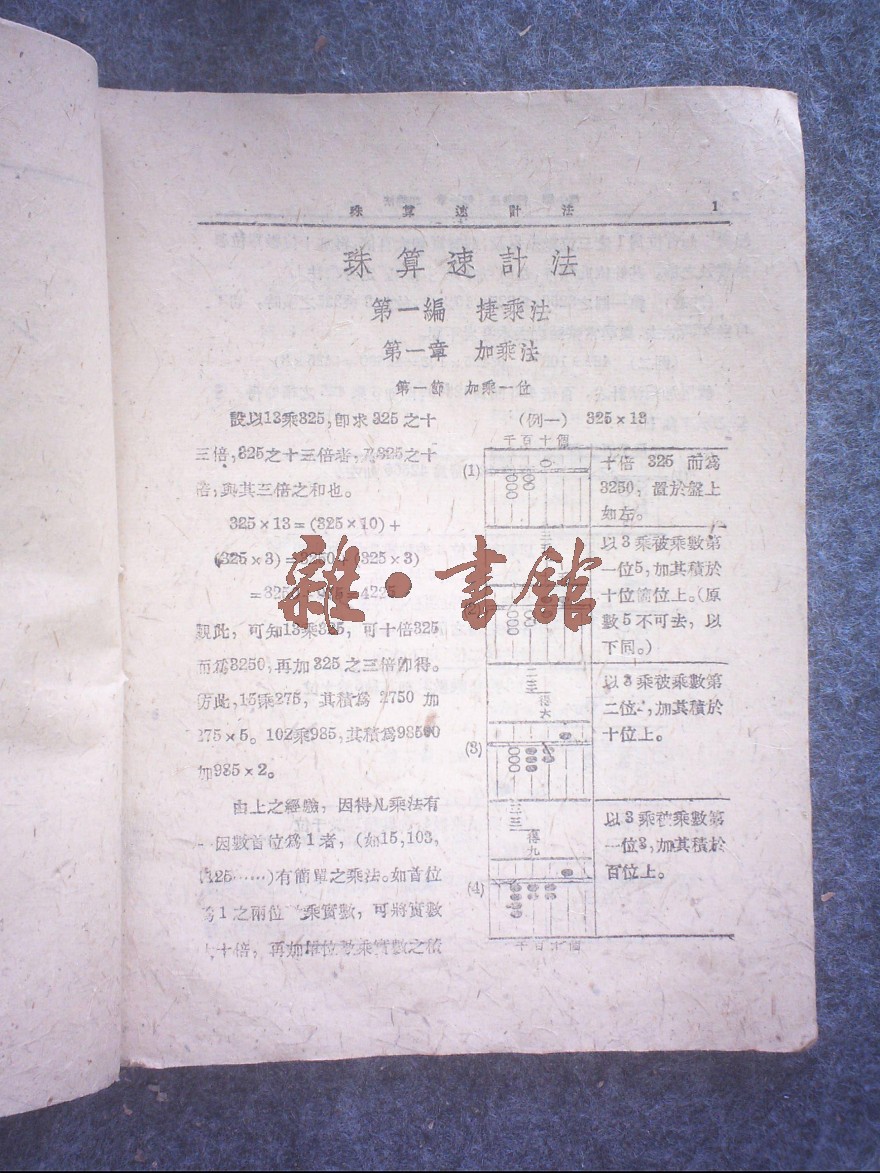 珠算速計法 1
珠算速計法
第一編 捷乘法
第一章 加乘法
第一節 加乘一位
設以13乘325,卽求325之十
三倍,325之十三倍者,爲325之十
倍,與其三倍之和也。
325×13=(325×10)+
(325×3)=3250+(325×3)
=3250 4225
觀此,可知13乘325,可十倍325
而爲3250,再加325之三倍卽得。
仿此,15乘275,其積爲2750加
275×5。102乘985,其積爲98500
加985×2。
由上之經驗,因得凡乘法有
一因數首位爲1者,(如15,103,
125……)有簡單之乘法。如首位
爲1之兩位 乘實數,可將實數
十倍,再加 位數乘實數之積
(例一) 325×13
千百十個
(1)
十倍 325 而爲
3250,置於盤上
如左。
三五
以3乘被乘數第
一位5,加其積於
十位個位上。(原
數5不可去,以
下同。)
二三得六
(3)
以3乘被乘數第
二位,加其積於
十位上。
三三得九
(4)
以3乘被乘數第
一位3,加其積於
百位上。
千百十個
雜·書館